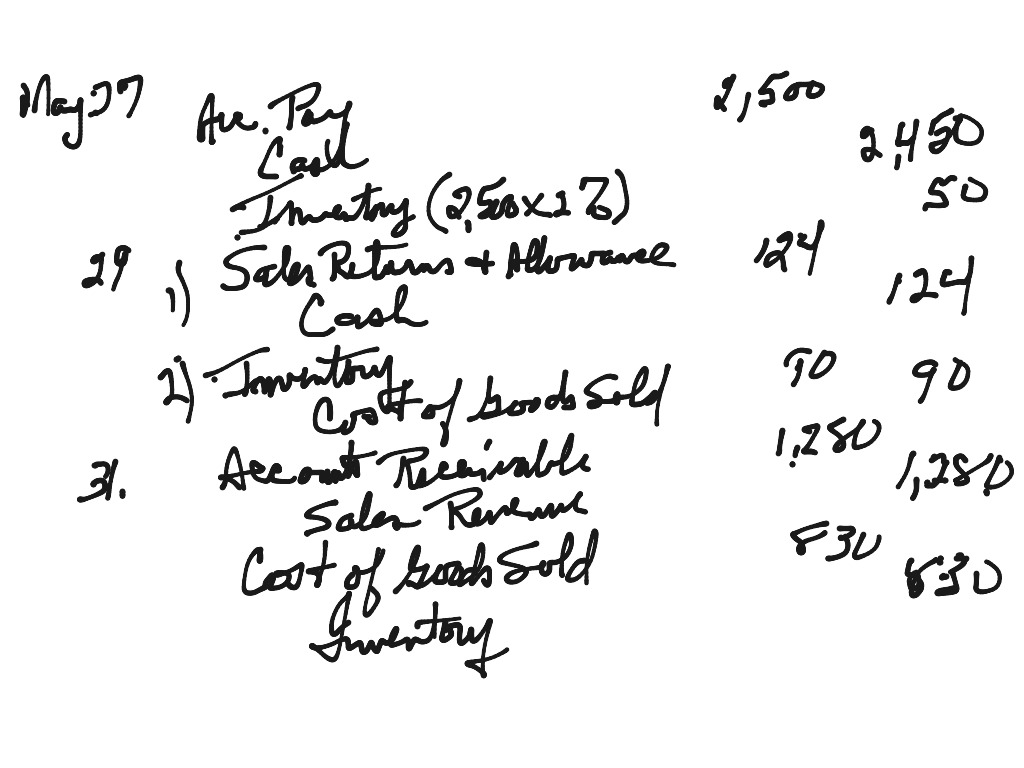 May 27 Acc. Pay 2,500
Cash 2,450
Inventory (2,500 x 2%) 50
29 1) Sales Returns + Allowance 124
Cash 124
2) Inventory 90
Cost of Goods Sold 90
31. Accounts Receivable 1,280
Sales Revenue 1,280
Cost of Goods Sold 830
Inventory 830